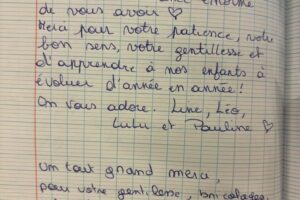 énorme
de vous avoir ♡
Merci pour votre patience, votre
bon sens, votre gentillesse et
d'apprendre à nos enfants à
évoluer d'année en année !
On vous adore. Line, Léo,
Lulu et Pauline ♡
Un tout grand merci,
pour votre gentillesse, bricolages,